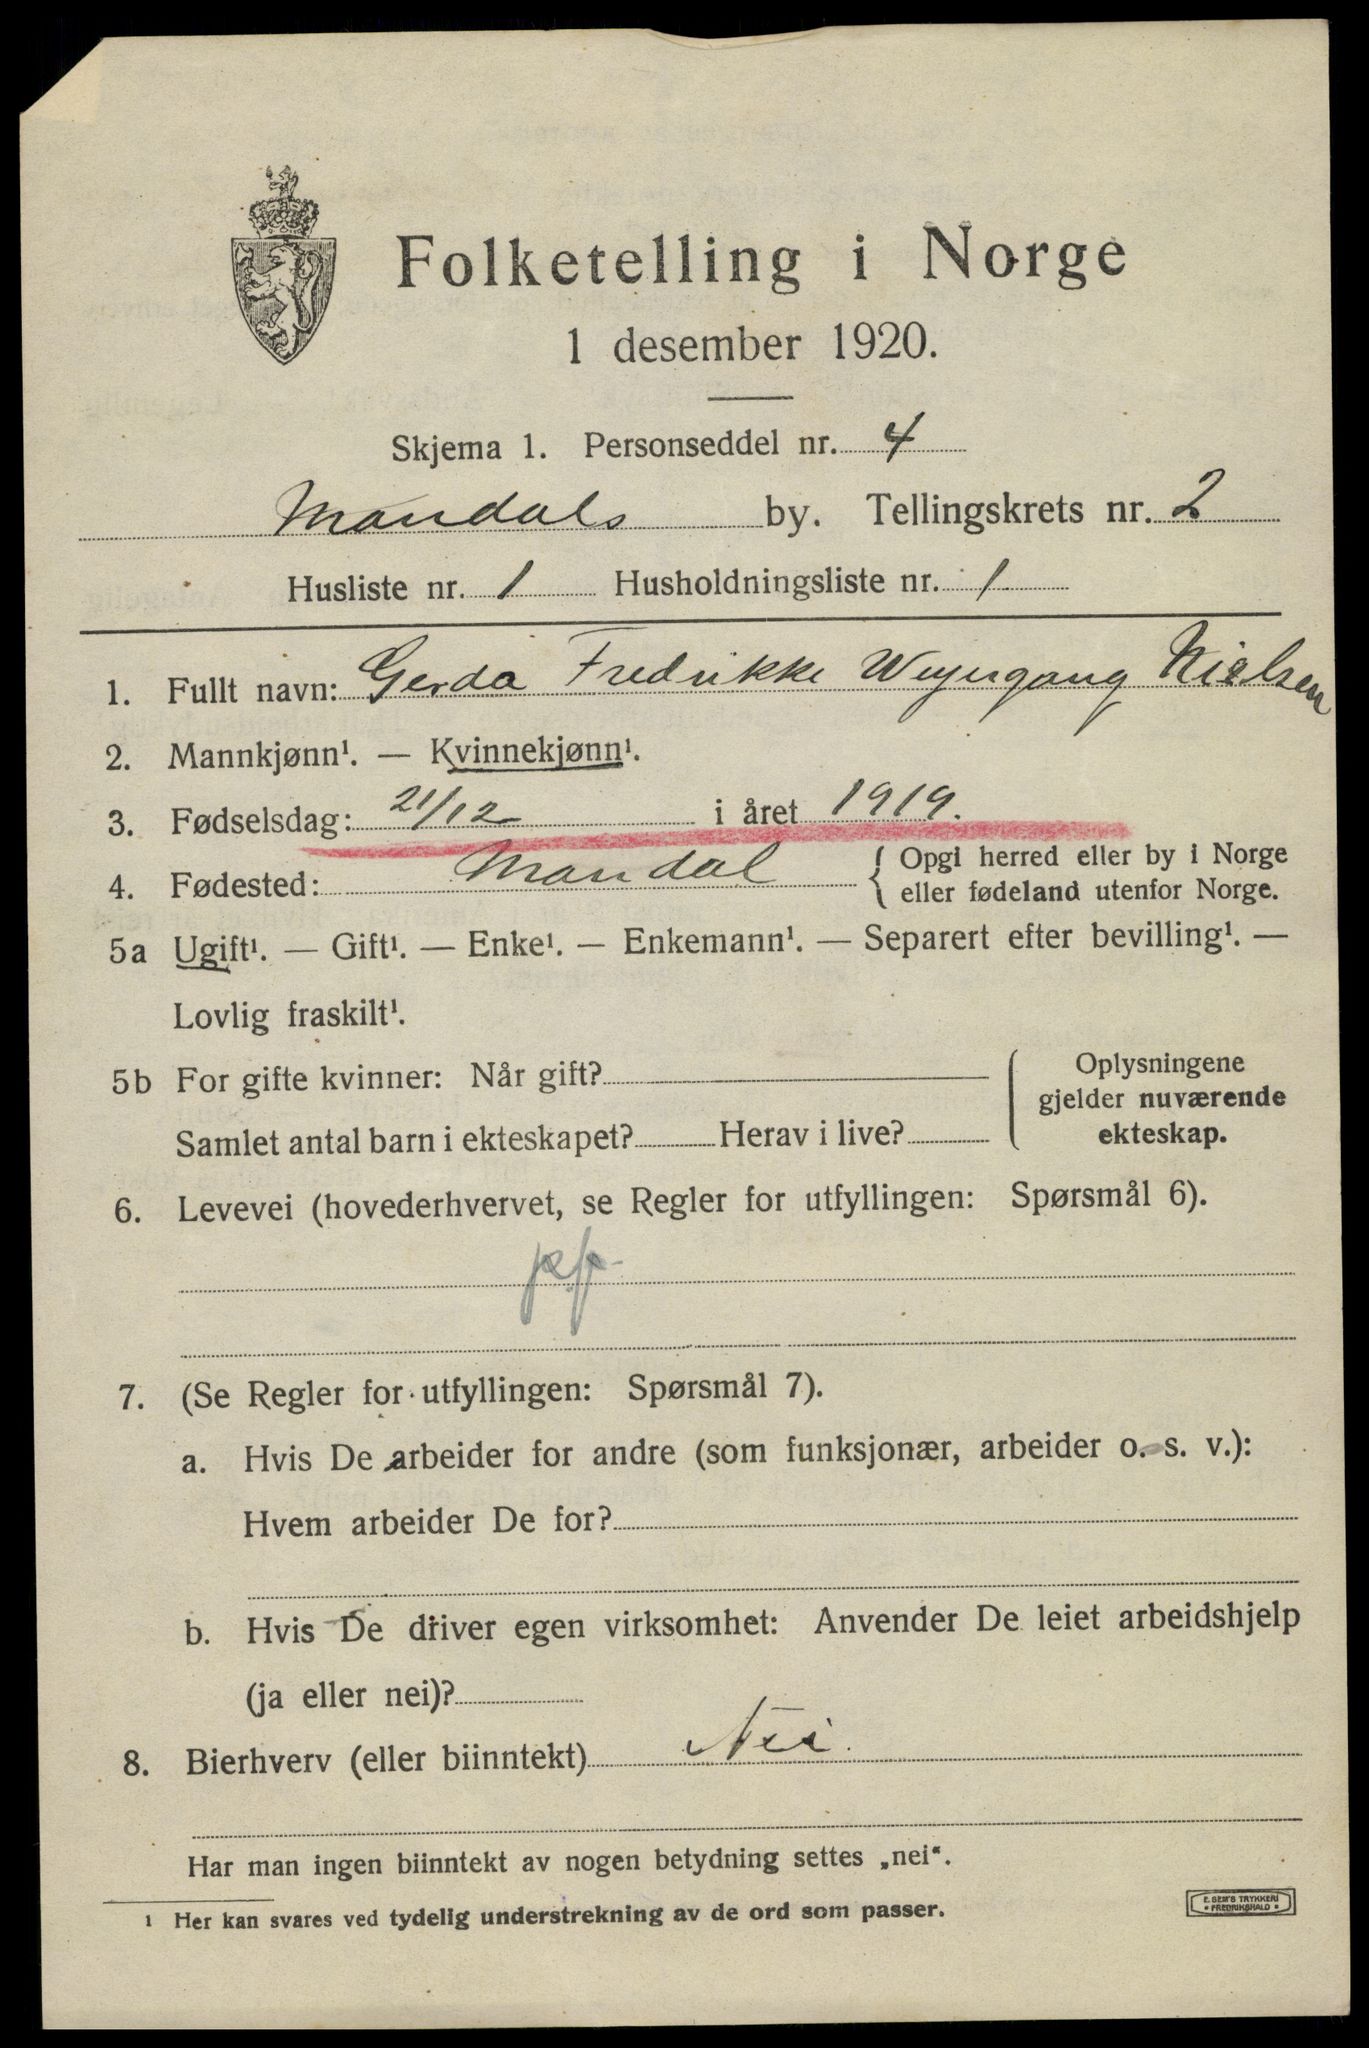 Folketelling i Norge
1 desember 1920.
Skjema 1. Personseddel nr. 4
Mandals by. Tellingskrets nr. 2
Husliste nr. 1 Husholdningsliste nr. 1
1. Fullt navn: Gerda Fredrikke Weyergang Nielsen
2. Mannkjønn¹. — Kvinnekjønn¹.
3. Fødselsdag: 21/12 i året 1919.
4. Fødested: Mandal { Opgi herred eller by i Norge
eller fødeland utenfor Norge.
5a Ugift¹. — Gift¹. — Enke¹. — Enkemann¹. — Separert efter bevilling¹. —
Lovlig fraskilt¹.
5b For gifte kvinner: Når gift?
Samlet antal barn i ekteskapet? Herav i live?
Oplysningene
gjelder nuværende
ekteskap.
6. Levevei (hovederhvervet, se Regler for utfyllingen: Spørsmål 6).
7. (Se Regler for utfyllingen: Spørsmål 7).
a. Hvis De arbeider for andre (som funksjonær, arbeider o. s. v.):
Hvem arbeider De for?
b. Hvis De driver egen virksomhet: Anvender De leiet arbeidshjelp
(ja eller nei)?
8. Bierhverv (eller biinntekt) Nei.
Har man ingen biinntekt av nogen betydning settes „nei“.
¹ Her kan svares ved tydelig understrekning av de ord som passer.
E. SEM'S TRYKKERI
• FREDRIKSHALD •